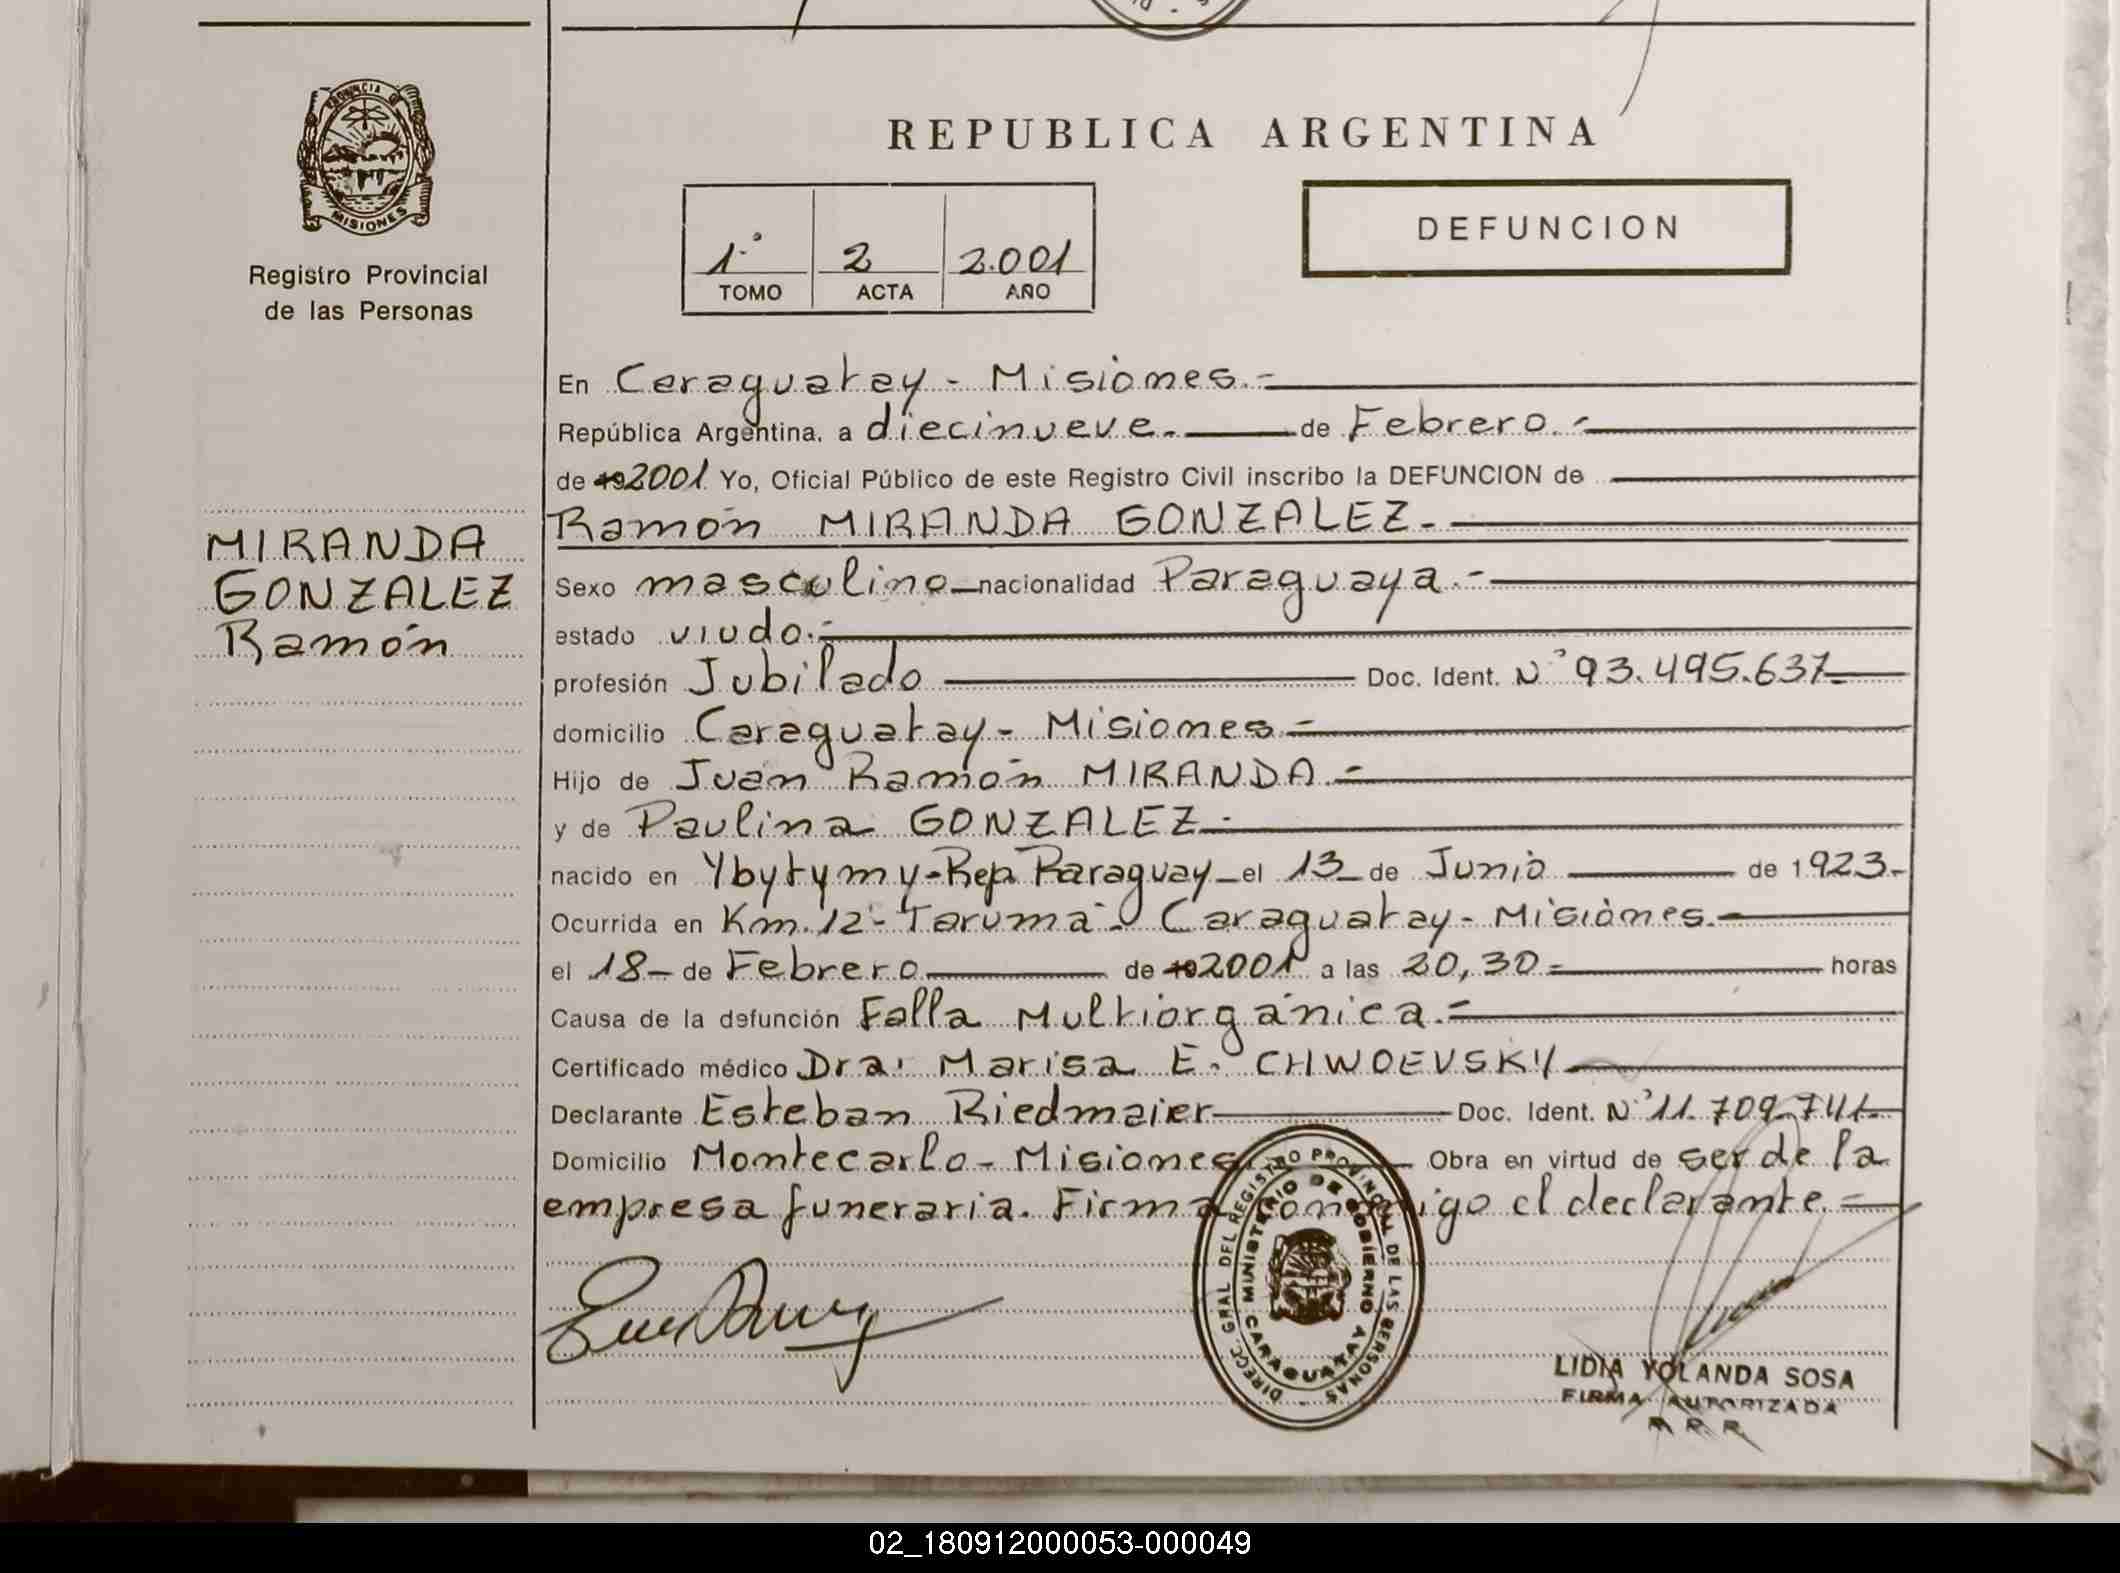 PROVINCIA DE
MISIONES
Registro Provincial
de las Personas
MIRANDA
GONZALEZ
Ramón
REPUBLICA ARGENTINA
1º 2 2.001
TOMO ACTA AÑO
DEFUNCION
En Caraguatay - Misiones.-
República Argentina, a diecinueve. de Febrero.-
de 192001 Yo, Oficial Público de este Registro Civil inscribo la DEFUNCION de
Ramón MIRANDA GONZALEZ.-
Sexo masculino nacionalidad Paraguaya.-
estado viudo.-
profesión Jubilado Doc. Ident. Nº 93.495.637
domicilio Caraguatay - Misiones.-
Hijo de Juan Ramón MIRANDA.-
y de Paulina GONZALEZ.-
nacido en Ybytymy-Rep. Paraguay el 13 de Junio de 1923.-
Ocurrida en Km. 12 - Taruma - Caraguatay - Misiones.-
el 18 de Febrero de 192001 a las 20,30 horas
Causa de la defunción Falla Multiorgánica.-
Certificado médico Dra. Marisa E. CHWOEVSKY
Declarante Esteban Riedmaier Doc. Ident. Nº 11.709.741
Domicilio Montecarlo - Misiones Obra en virtud de ser de la
empresa funeraria. Firma conmigo el declarante.-
DIRECC. GRAL DEL REGISTRO PROVINCIAL DE LAS PERSONAS
MINISTERIO DE GOBIERNO
CARAGUATAY
LIDIA YOLANDA SOSA
FIRMA AUTORIZADA
R. R. P.
02_180912000053-000049